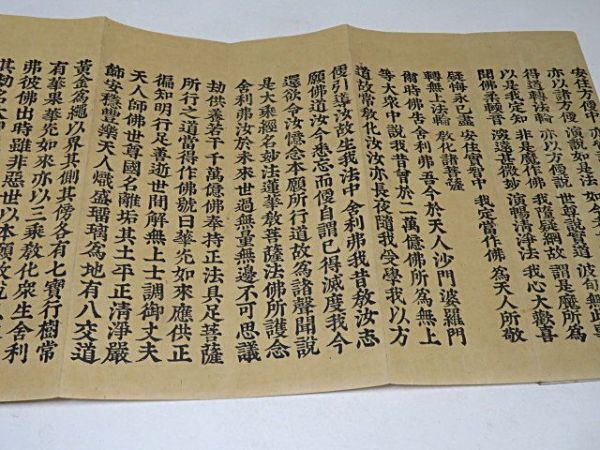 安住方便中　亦皆說
亦以諸方便　演說如是法　如今者
得道轉法輪　亦以方便說　世尊說實道　波旬無此事
以是我定知　非是魔作佛　我墮疑網故　謂是魔所為
聞佛柔輭音　深遠甚微妙　演暢清淨法　我心大歡喜
疑悔永已盡　安住實智中　我定當作佛　為天人所敬
轉無上法輪　教化諸菩薩
爾時佛告舍利弗吾今於天人沙門婆羅門
等大衆中說我昔曾於二萬億佛所為無上
道故常教化汝汝亦長夜隨我受學我以方
便引導汝故生我法中舍利弗我昔教汝志
願佛道汝今悉忘而便自謂已得滅度我今
還欲令汝憶念本願所行道故為諸聲聞說
是大乘經名妙法蓮華教菩薩法佛所護念
舍利弗汝於未來世過無量無邊不可思議
劫供養若干千萬億佛奉持正法具足菩薩
所行之道當得作佛號曰華光如來應供正
徧知明行足善逝世間解無上士調御丈夫
天人師佛世尊國名離垢其土平正清淨嚴
飾安穩豐樂天人熾盛瑠璃為地有八交道
黃金為繩以界其側其傍各有七寶行樹常
有華果華光如來亦以三乘教化衆生舍利
弗彼佛出時雖非惡世以本願故說三
其劫名大